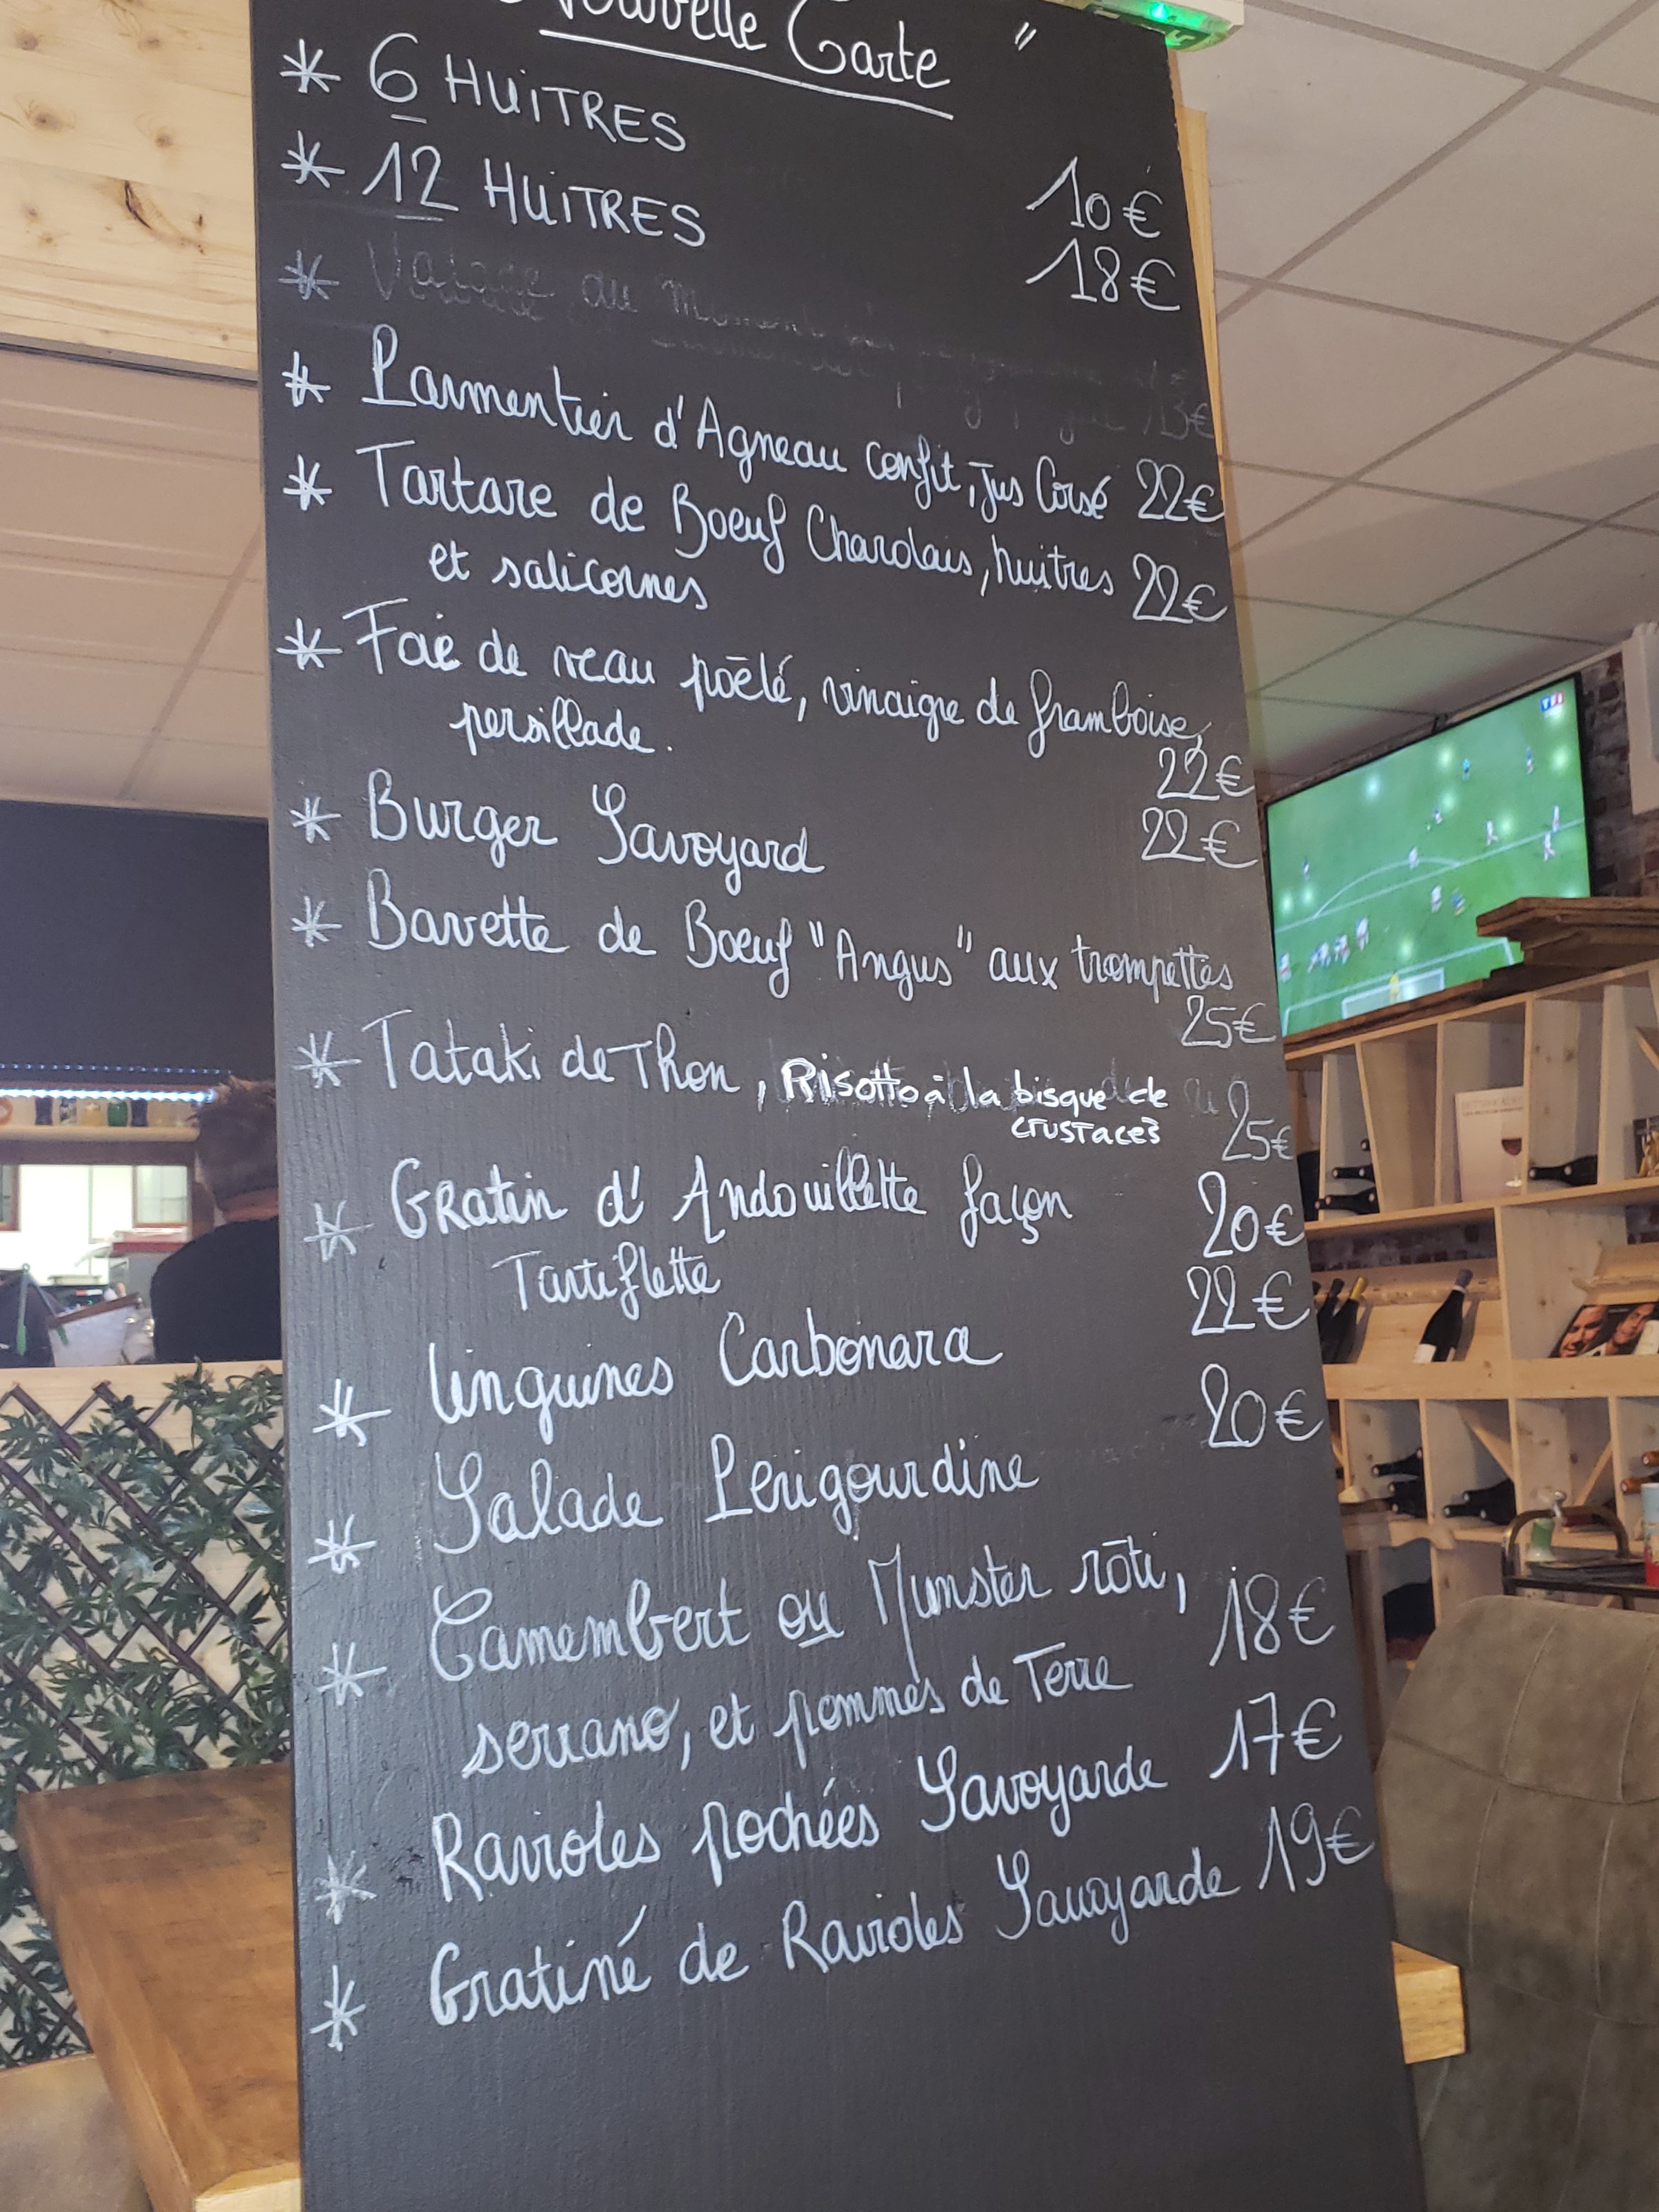 Nouvelle Carte "
* 6 HUiTRES 10€
* 12 HUiTRES 18€
* du 13€
* Parmentier d'Agneau confit, jus Corsé 22€
* Tartare de Boeuf Charolais, huitres 22€
et salicornes
* Foie de veau poêlé, vinaigre de framboise,
persillade. 22€
* Burger Savoyard 22€
* Bavette de Boeuf "Angus" aux trompettes
25€
* Tataki de Thon, Risotto à la bisque de 25€
crustacés
* Gratin d'Andouillette façon 20€
Tartiflette
* linguines Carbonara 22€
* Salade Périgourdine 20€
* Camembert ou Munster rôti, 18€
serrano, et pommes de Terre
* Ravioles pochées Savoyarde 17€
* Gratiné de Ravioles Savoyarde 19€
TF1